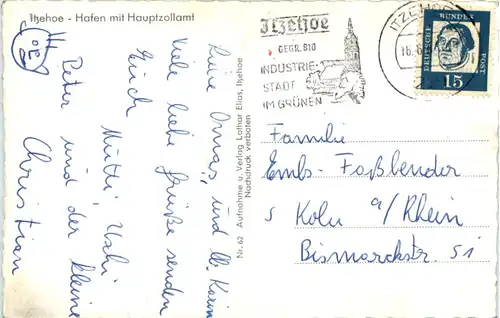 Itzehoe - Hafen mit Hauptzollamt
Liebe Omas, und lb. Karin
Viele liebe Grüße senden
Euch Mutti, Uschi
Peter und der kleine
Christian
Nr. 62 Aufnahme u. Verlag Lothar Elias, Itzehoe
Nachdruck verboten
Itzehoe
GEGR. 810
INDUSTRIE-
STADT
IM GRÜNEN
ITZEHOE
16.
DEUTSCHE BUNDESPOST
15
Familie
Embs-Faßbender
5 Köln a/Rhein
Bismarckstr. 51